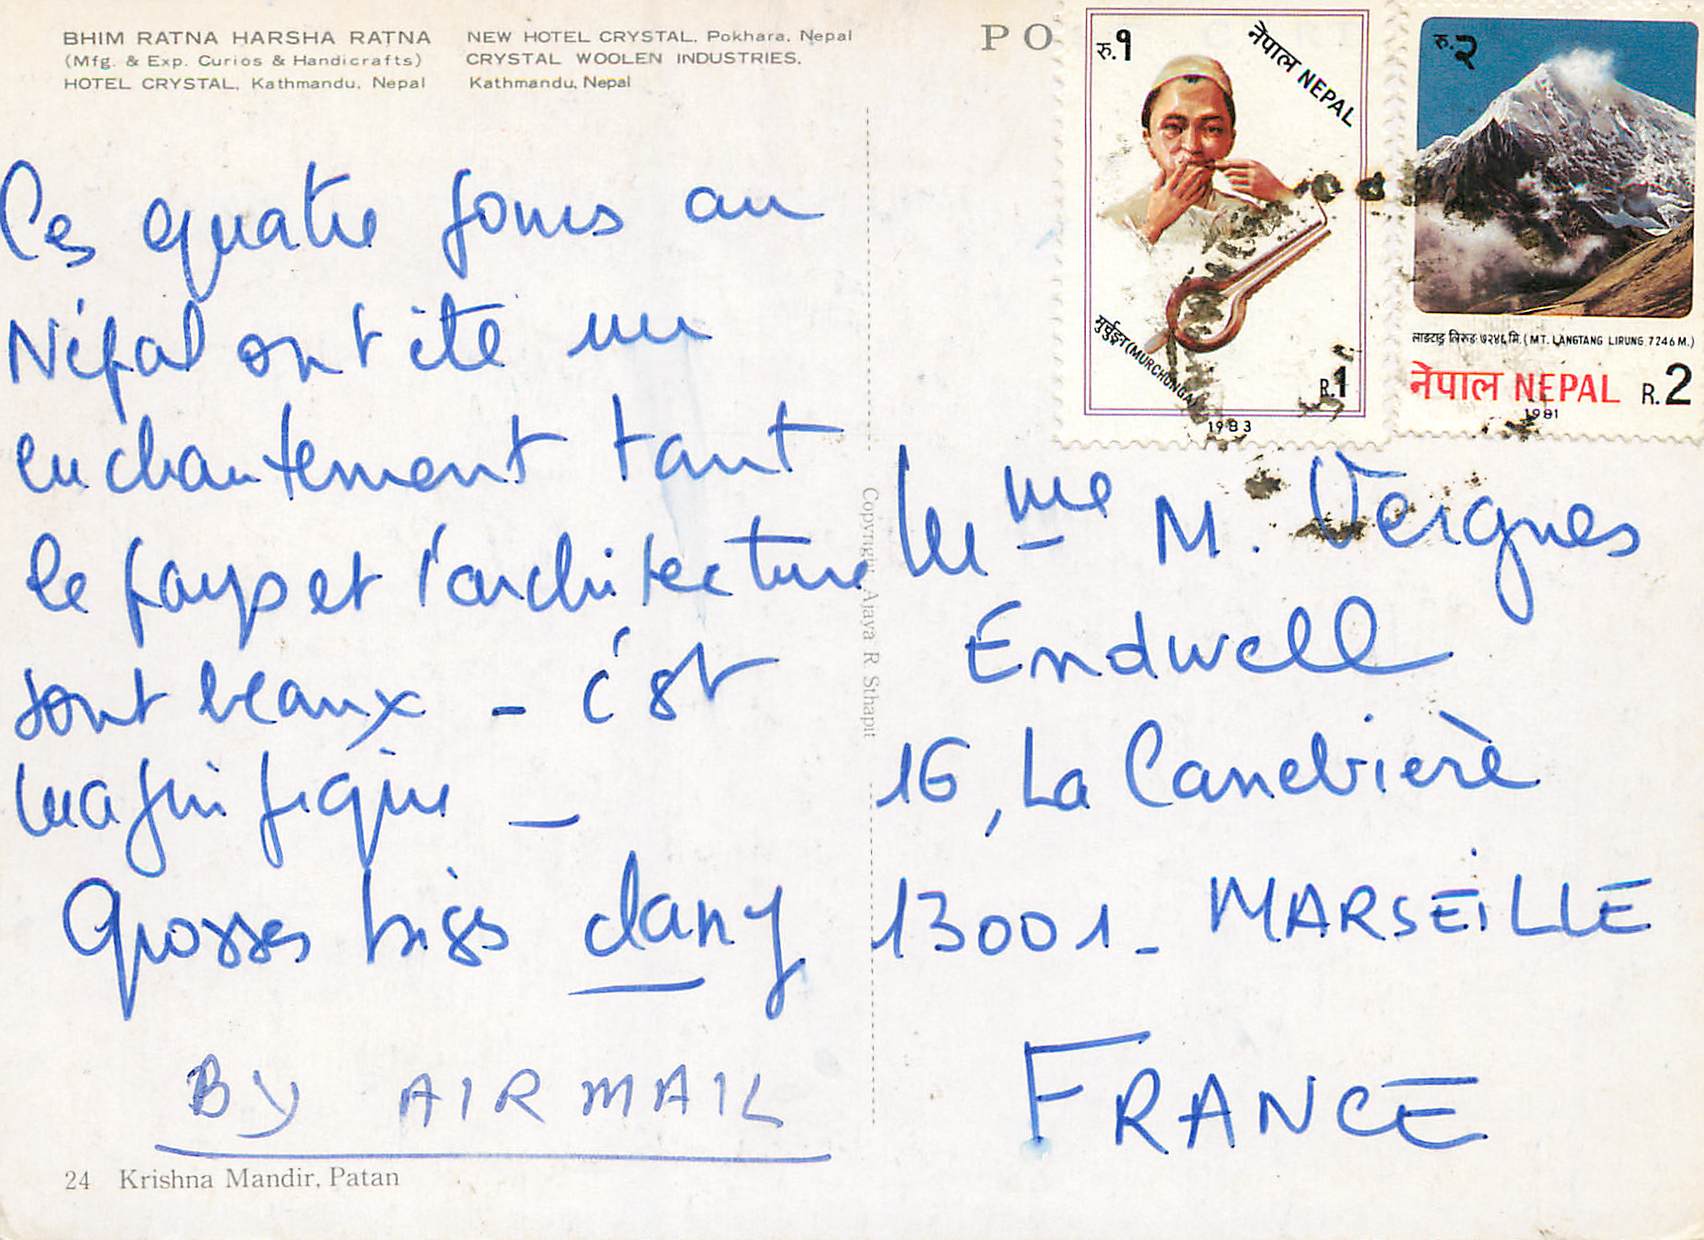 BHIM RATNA HARSHA RATNA
(Mfg. & Exp. Curios & Handicrafts)
HOTEL CRYSTAL, Kathmandu, Nepal
NEW HOTEL CRYSTAL, Pokhara, Nepal
CRYSTAL WOOLEN INDUSTRIES,
Kathmandu, Nepal
PO
रु.१
नेपाल NEPAL
मुर्चुङ्गा (MURCHUNGA)
R.1
1983
रु.२
लाङटाङ लिरुङ ७२४६ मि. (MT. LANGTANG LIRUNG 7246 M.)
नेपाल NEPAL R.2
1981
Ces quatre jours au
Népal ont été un
enchantement tant
le pays et l'architecture
sont beaux - c'est
magnifique -
Grosses bises dany
BY AIR MAIL
24 Krishna Mandir, Patan
Copyright Ajaya R Sthapit
Mme M. Vergnes
Endwell
16, La Canebière
13001 - MARSEILLE
FRANCE